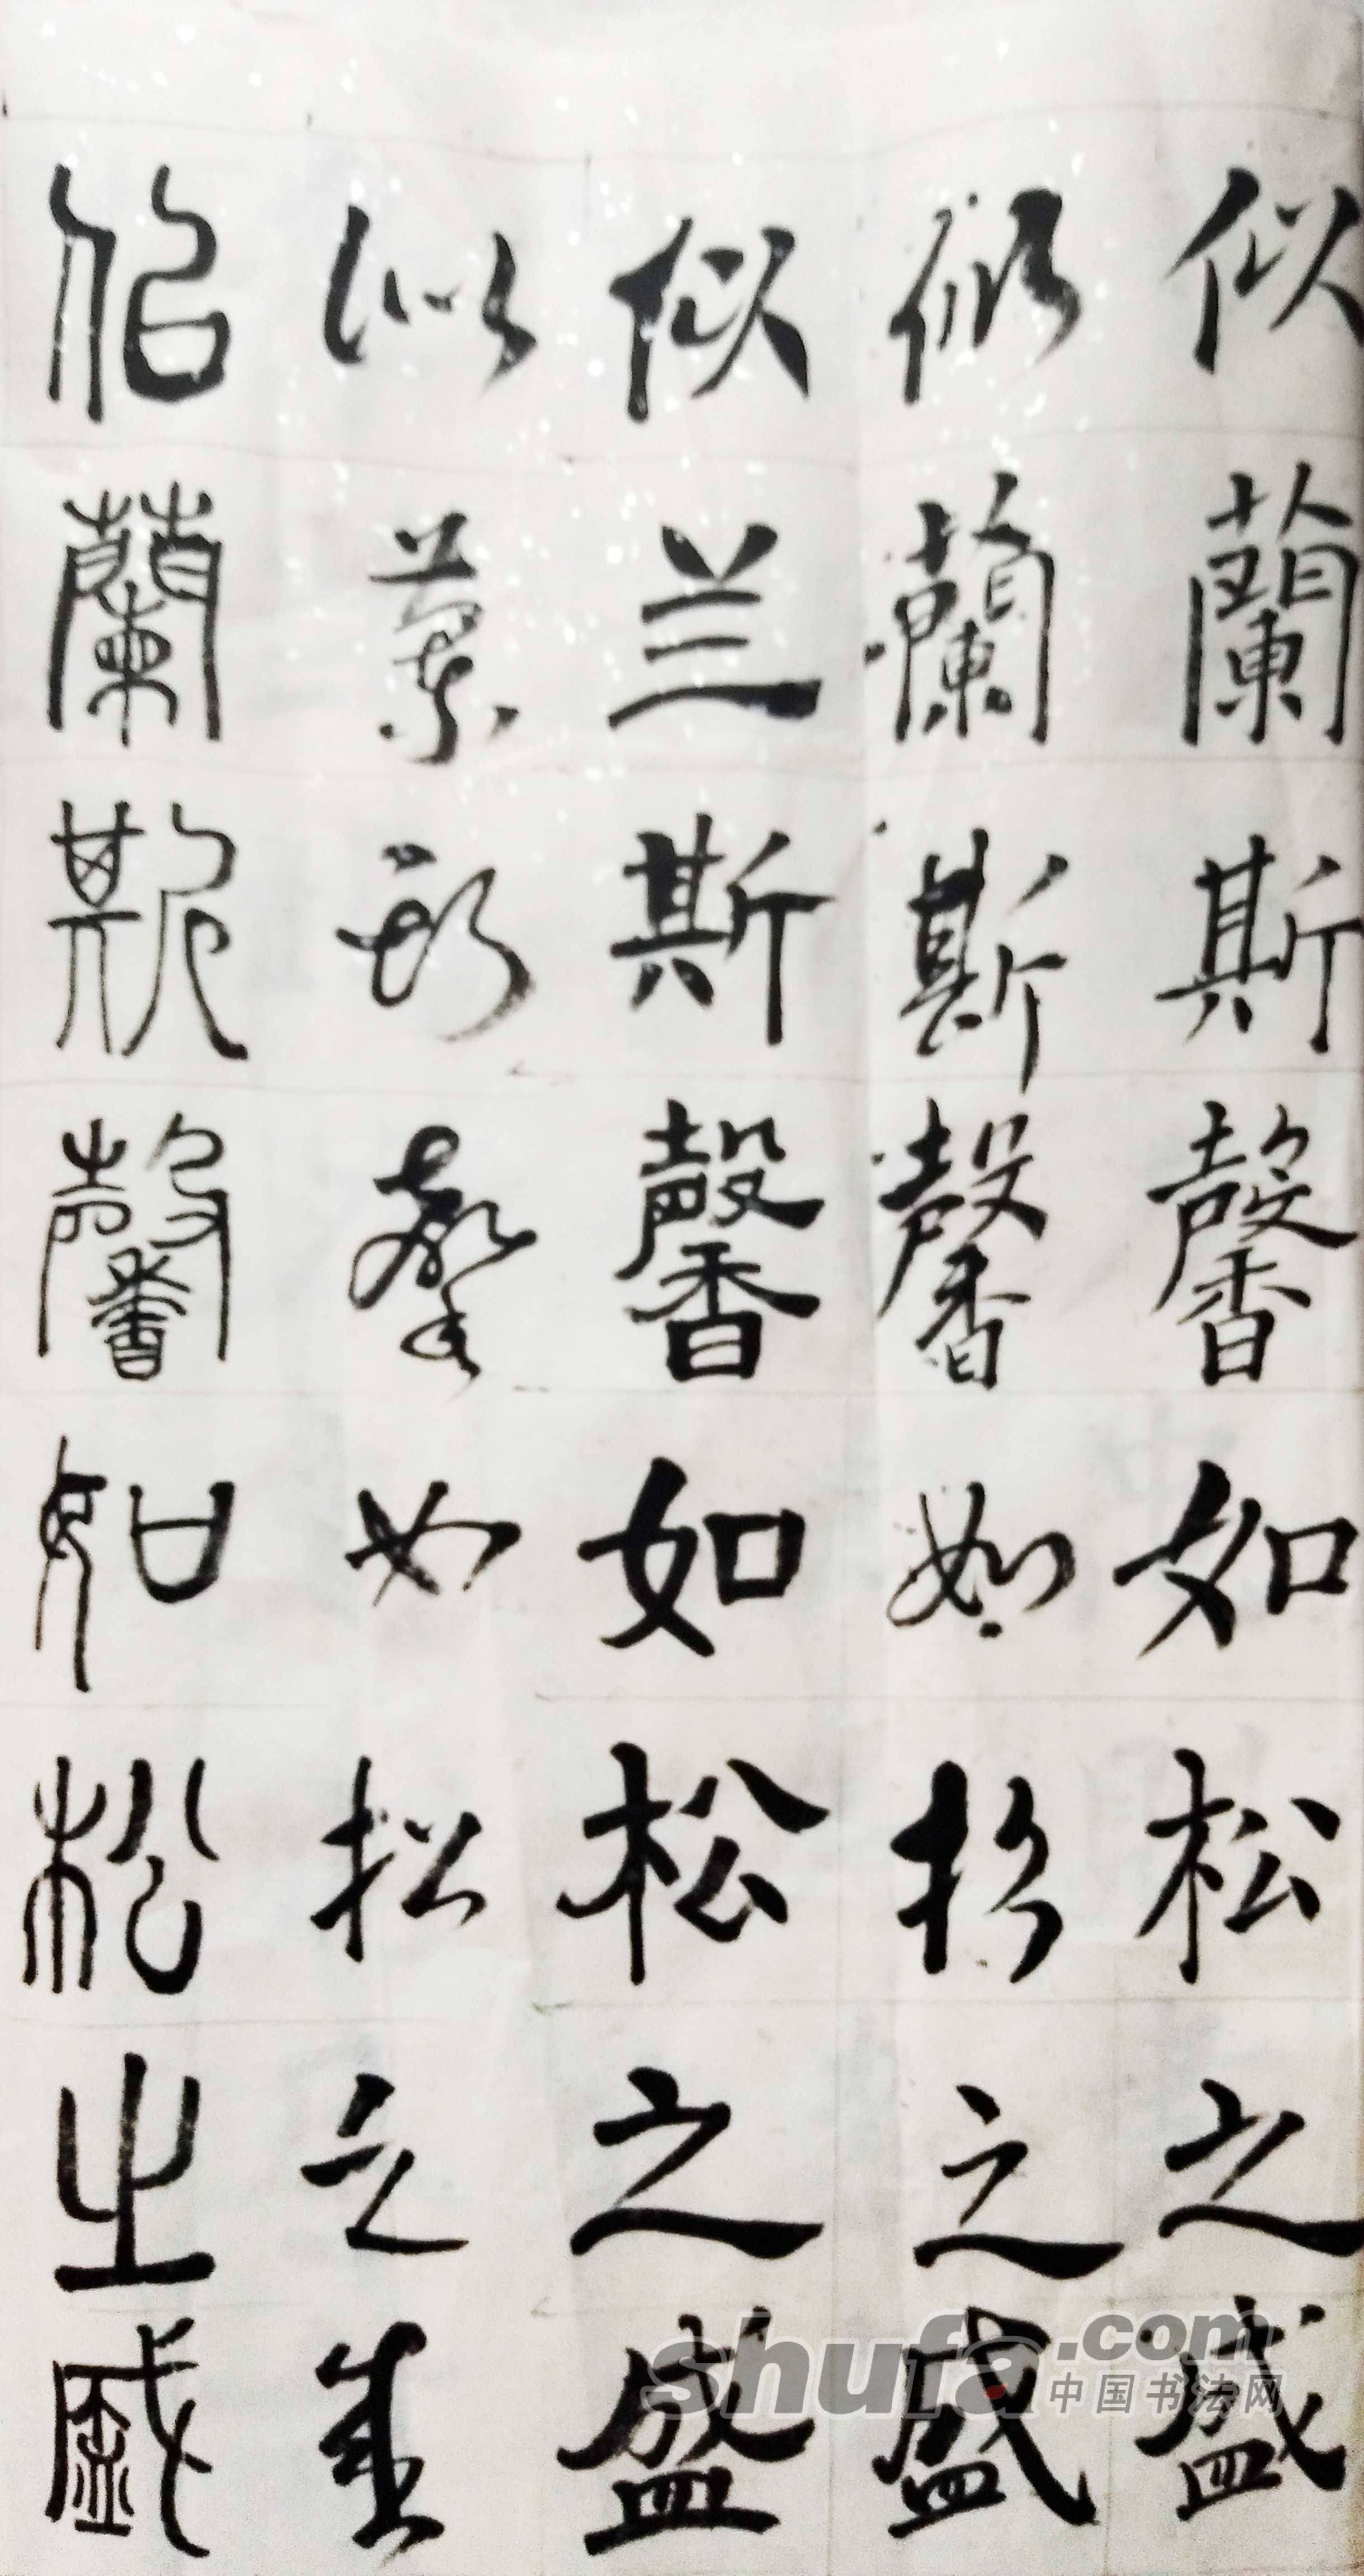 似蘭斯馨如松之盛
似蘭斯馨如松之盛
似兰斯馨如松之盛
似蘭斯馨如松之盛
佀蘭斯馨如松之盛
shufa.com
中国书法网